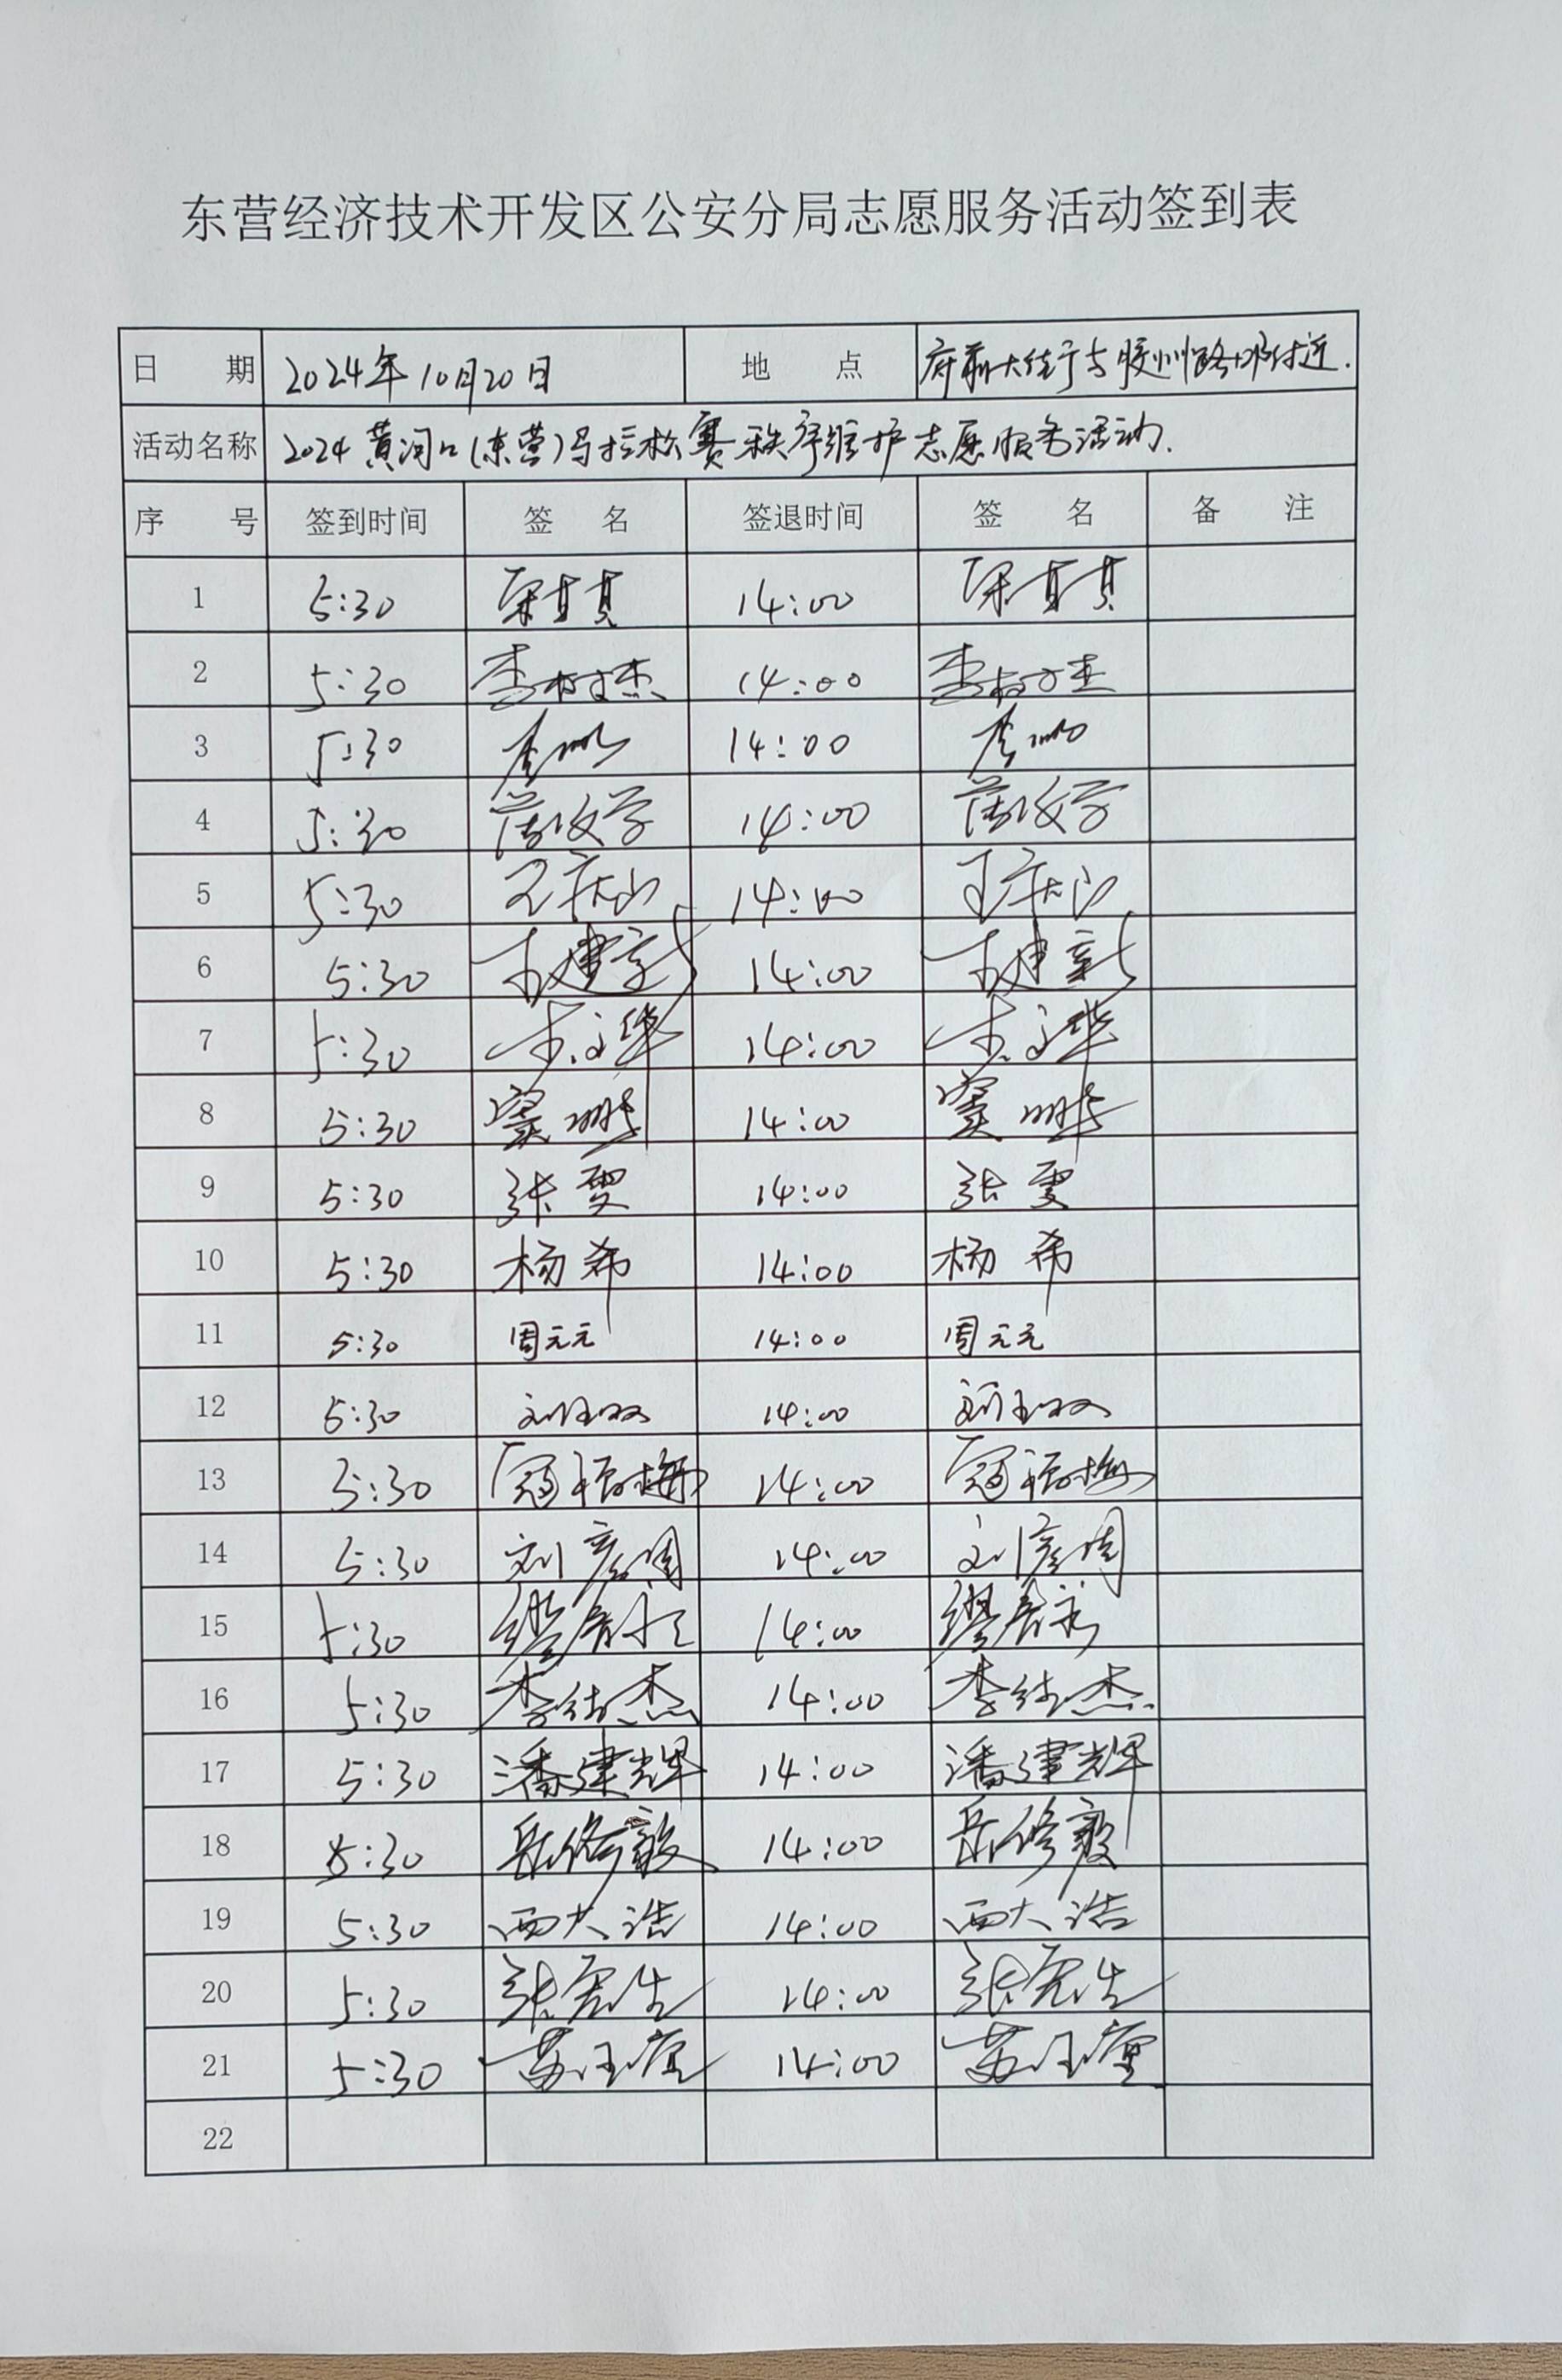 东营经济技术开发区公安分局志愿服务活动签到表
日 期 2024年10月20日 地 点 府前大街与胶州路口附近.
活动名称 2024黄河口(东营)马拉松赛秩序维护志愿服务活动.
序 号 签到时间 签 名 签退时间 签 名 备 注
1 5:30 14:00
2 5:30 李树杰 14:00 李树杰
3 5:30 14:00
4 5:30 14:00
5 5:30 王庆山 14:00 王庆山
6 5:30 14:00
7 5:30 14:00
8 5:30 14:00
9 5:30 张雯 14:00 张雯
10 5:30 杨希 14:00 杨希
11 5:30 周元元 14:00 周元元
12 5:30 刘玉双 14:00 刘玉双
13 5:30 寇福梅 14:00 寇福梅
14 5:30 刘彦周 14:00 刘彦周
15 5:30 14:00
16 5:30 李结杰 14:00 李结杰
17 5:30 潘建辉 14:00 潘建辉
18 5:30 岳修毅 14:00 岳修毅
19 5:30 西大浩 14:00 西大浩
20 5:30 张宪生 14:00 张宪生
21 5:30 14:00
22